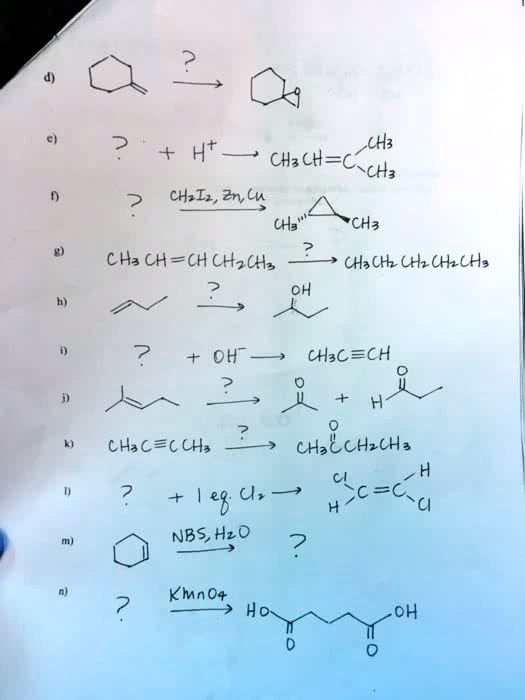 d) ? O
e) ? + H⁺ → CH3CH=C CH3 CH3
f) ? CH2I2, Zn, Cu CH3 CH3
g) CH3CH=CHCH2CH3 ? → CH3CH2CH2CH2CH3
h) ? OH
i) ? + OH⁻ → CH3C≡CH
j) ? → O + H O
k) CH3C≡CCH3 ? → CH3CCH2CH3 O
l) ? + 1 eq. Cl2 → Cl H C=C H Cl
m) NBS, H2O ?
n) ? KMnO4 HO O O OH